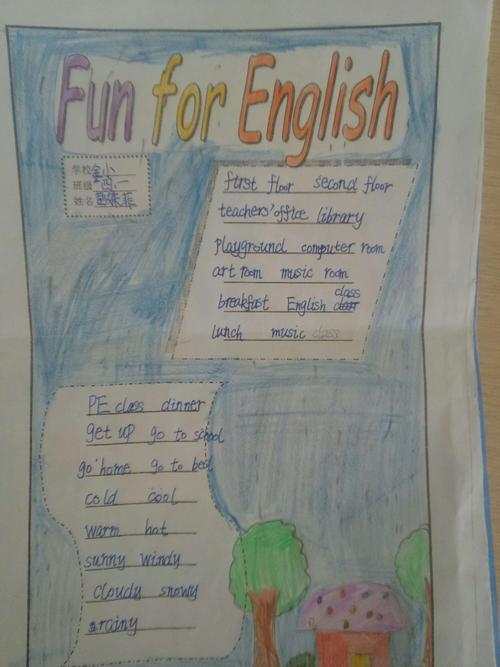 Fun for English
学校 金小
班级 四.一
姓名
first floor second floor
teachers' office library
playground computer room
art room music room
class
breakfast English
lunch music class
PE class dinner
get up go to school
go home go to bed
cold cool
warm hot
sunny windy
cloudy snowy
rainy